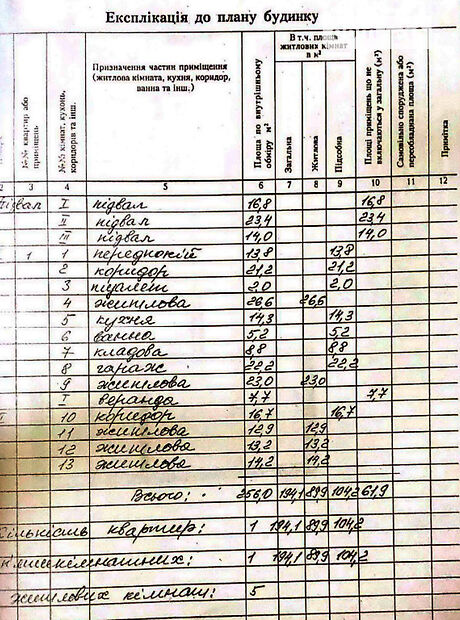 Експлікація до плану будинку
№№ квартир або приміщень
№№ кімнат, кухонь, коридорів та інш.
Призначення частин приміщення (житлова кімната, кухня, коридор, ванна та інш.)
Площа по внутрішньому обміру м²
В т.ч. площа житлових кімнат в м²
Загальна
Житлова
Підсобна
Площі приміщень що не включаються у загальну (м²)
Самовільно споруджена або переобладнана площа (м²)
Примітка
2 3 4 5 6 7 8 9 10 11 12
підвал I підвал 16,8 16,8
II підвал 23,4 23,4
III підвал 14,0 14,0
I 1 1 передпокій 13,8 13,8
2 коридор 21,2 21,2
3 туалет 2,0 2,0
4 житлова 26,6 26,6
5 кухня 14,3 14,3
6 ванна 5,2 5,2
7 кладова 8,8 8,8
8 гараж 22,2 22,2
9 житлова 23,0 23,0
I веранда 7,7 7,7
10 коридор 16,7 16,7
11 житлова 12,9 12,9
12 житлова 13,2 13,2
13 житлова 14,2 14,2
Всього: 256,0 194,1 89,9 104,2 61,9
кількість квартир: 1 194,1 89,9 104,2
1 194,1 89,9 104,2
житлових кімнат: 5